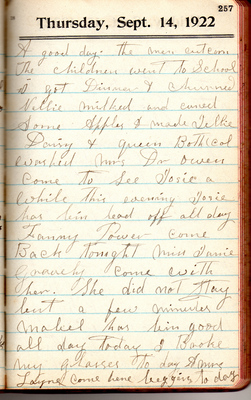 257
Thursday, Sept. 14, 1922
A good day. the men cut corn
The children went to School
I got Dinner & churned
Willie milked and caned
Some Apples & made Jellie
Dairy & queen Both (cal
washed Mrs Dr owen
Come to See Josie a
while this evening Josie
has bin bad off all day
Fanny Power Come
Back tonight Miss
come with
Her. She did not Stay
but a few minutes
Mabel has bin good
all day today I Broke
my glasses to day
come here beging to day